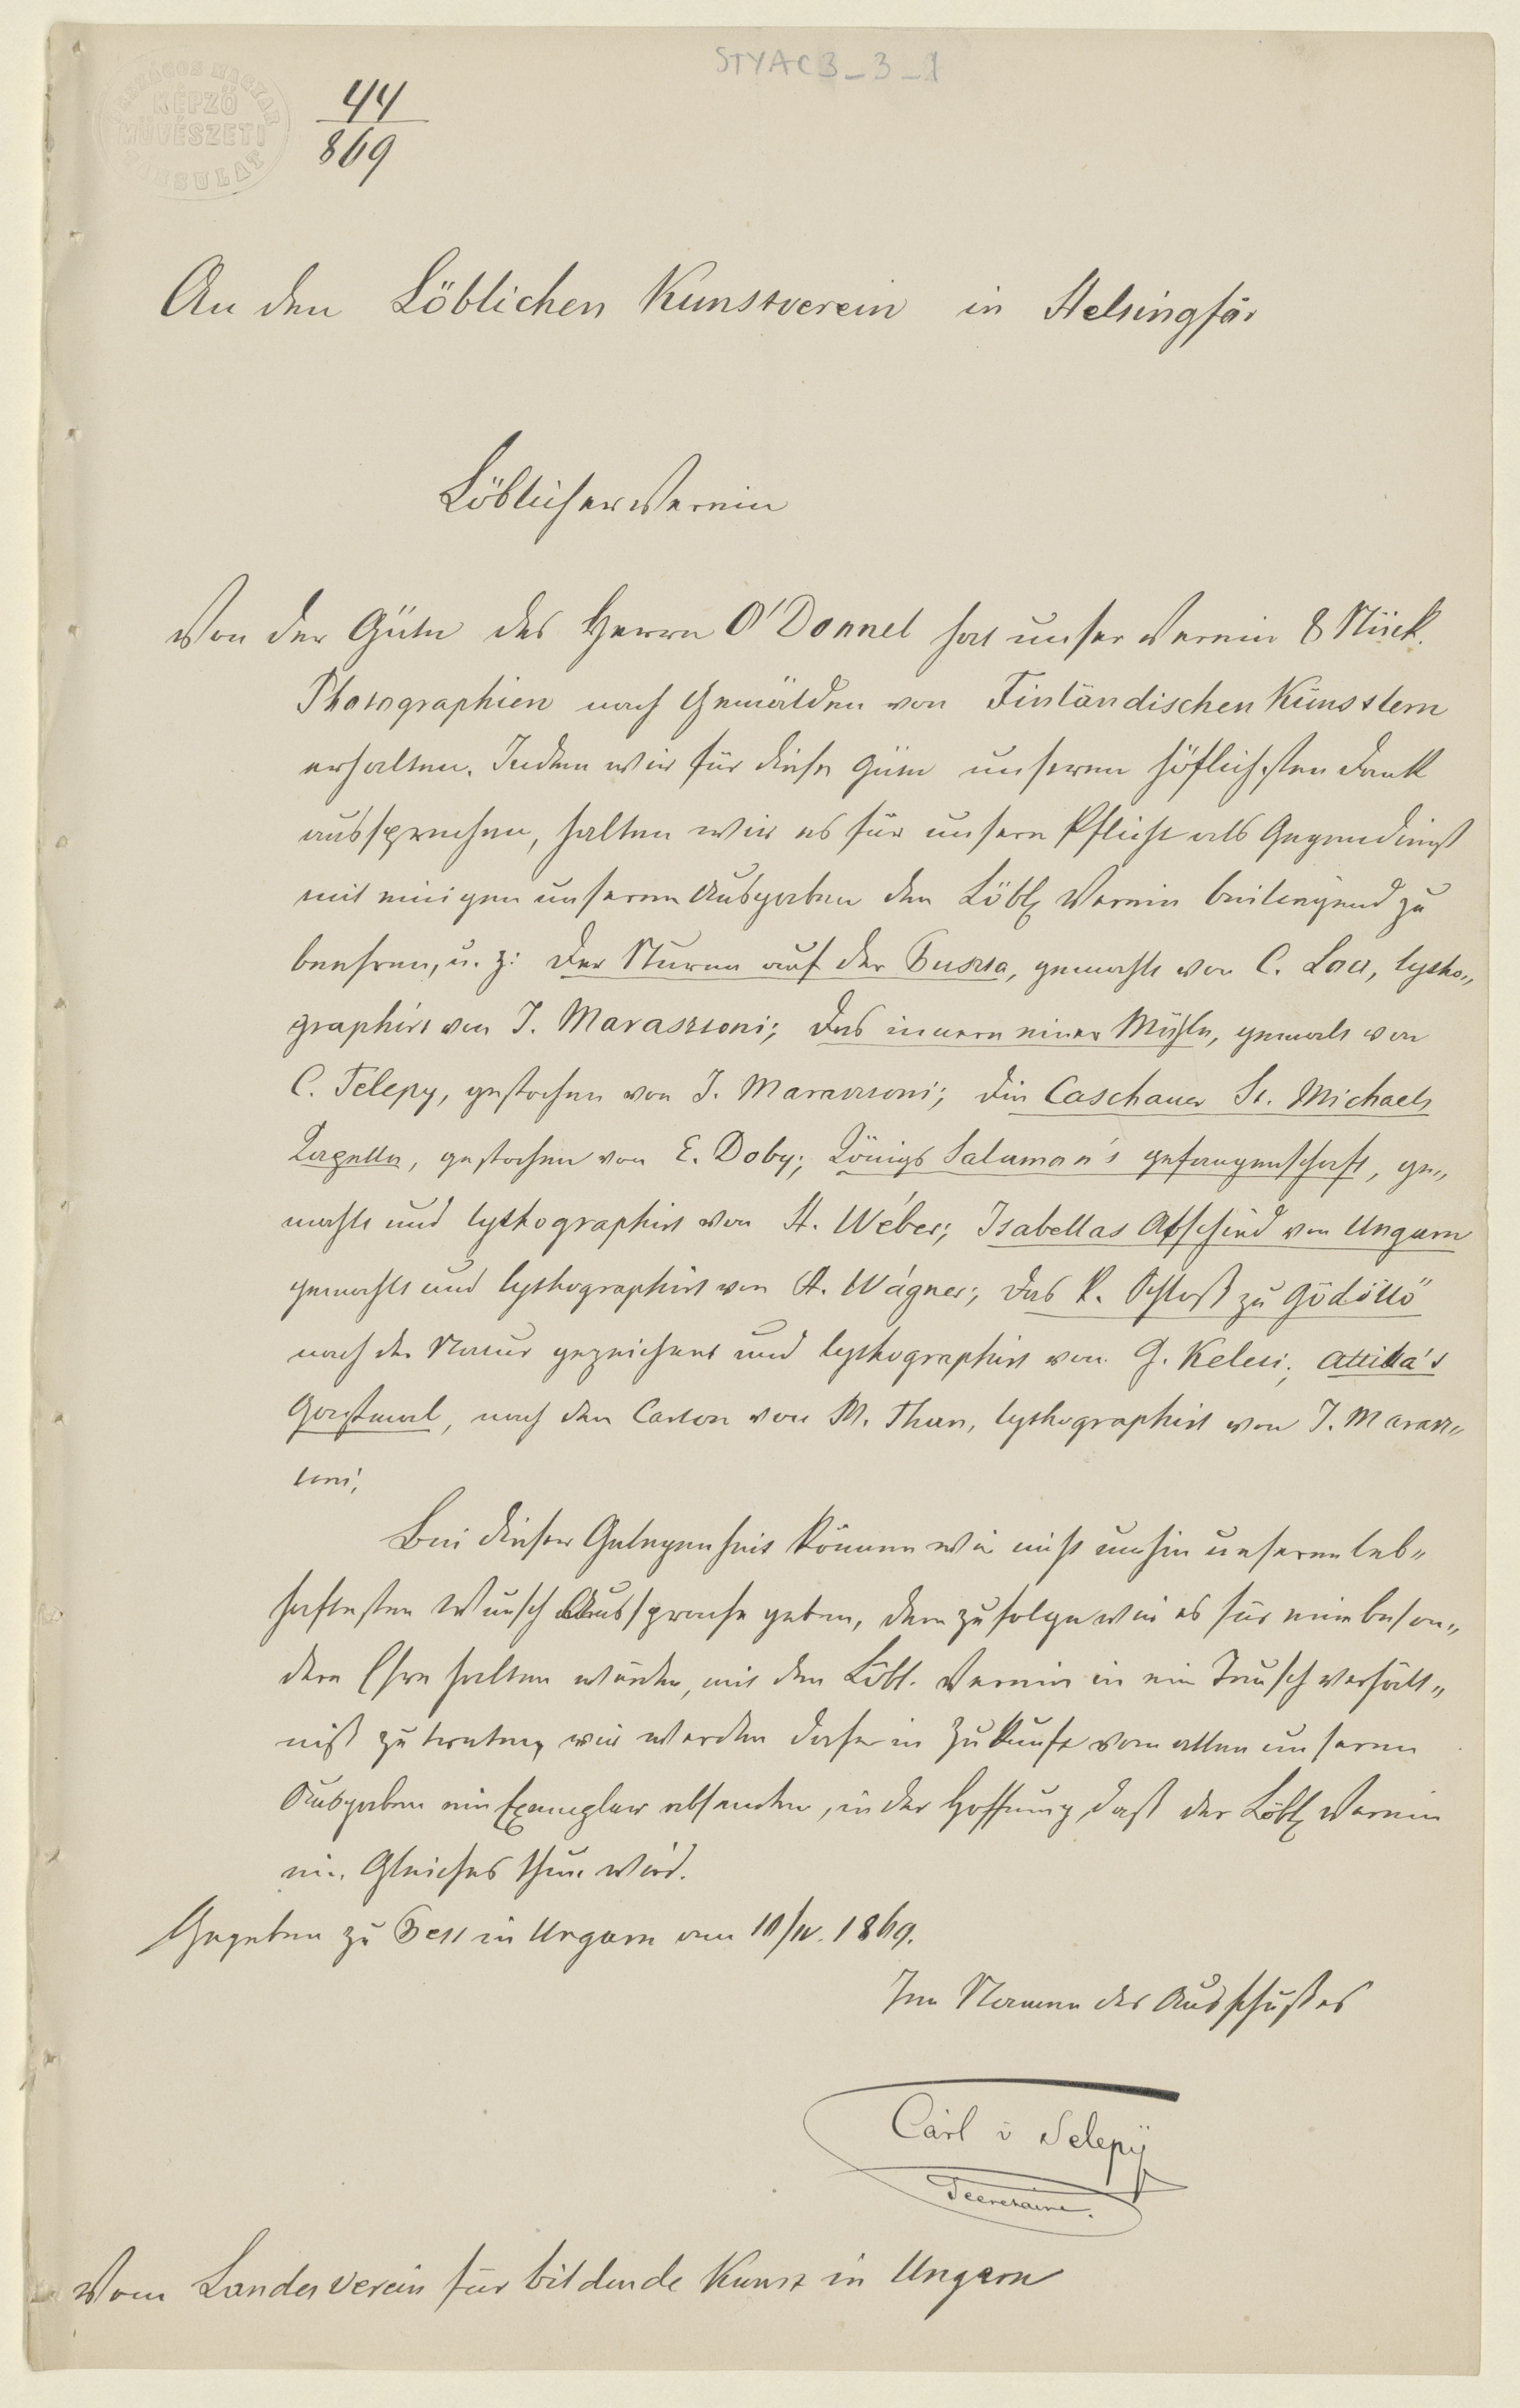 STYAC3_3_1
ORSZÁGOS MAGYAR
KÉPZŐ
MŰVÉSZETI
TÁRSULAT
44
869
An den Löblichen Kunstverein in Helsingfór
Löblicher Verein
Von der Güte des Herrn O'Donnel hat unser Verein 8 Stück
Photographien nach Gemälden von Finländischen Künstlern
erhalten. Indem wir für diese Güte unseren höflichsten Dank
aussprechen, halten wir es für unsere Pflicht als Gegendienst
mit einigen unseren Ausgaben den Löbl. Verein beiliegend zu
beehren, u. z: Der Sturm auf der Puszta, gemahlt von C. Loz, lytho„
graphirt von J. Maraszoni; Das innere einer Mühle, gemalt von
C. Telepy, gestochen von J. Maraszoni; Die Caschauer St. Michaels
Kapelle, gestochen von E. Doby; Königs Salamon's gefangenschaft, ge„
mahlt und lythographirt von H. Wéber; Isabellas Abschied von Ungarn
gemahlt und lythographirt von A. Wágner; Das k. Schloß zu Gödöllő
nach der Natur gezeichnet und lythographirt von G. Keleti; Attilla's
Gastmal, nach den Carton von M. Than, lythographirt von J. Marasz„
toni;
Bei dieser Gelegenheit können wir nicht umhin unseren leb„
haftesten Wunsch Aussprache geben, dem zu folge wir es für eine beson„
dere Ehre halten würden, mit den Löbl. Verein in ein Tausch verhält„
niß zu treten, wir werden daher in Zukunft von allen unseren
Ausgaben ein Exemplar absenden, in der Hoffnung, daß der Löbl. Verein
ein Gleiches thun wird.
Gegeben zu Pest in Ungarn am 10/IV. 1869.
Im Namen des Ausschußes
Carl v Telepÿ
Secretaire.
Vom Landesverein für bildende Kunst in Ungarn